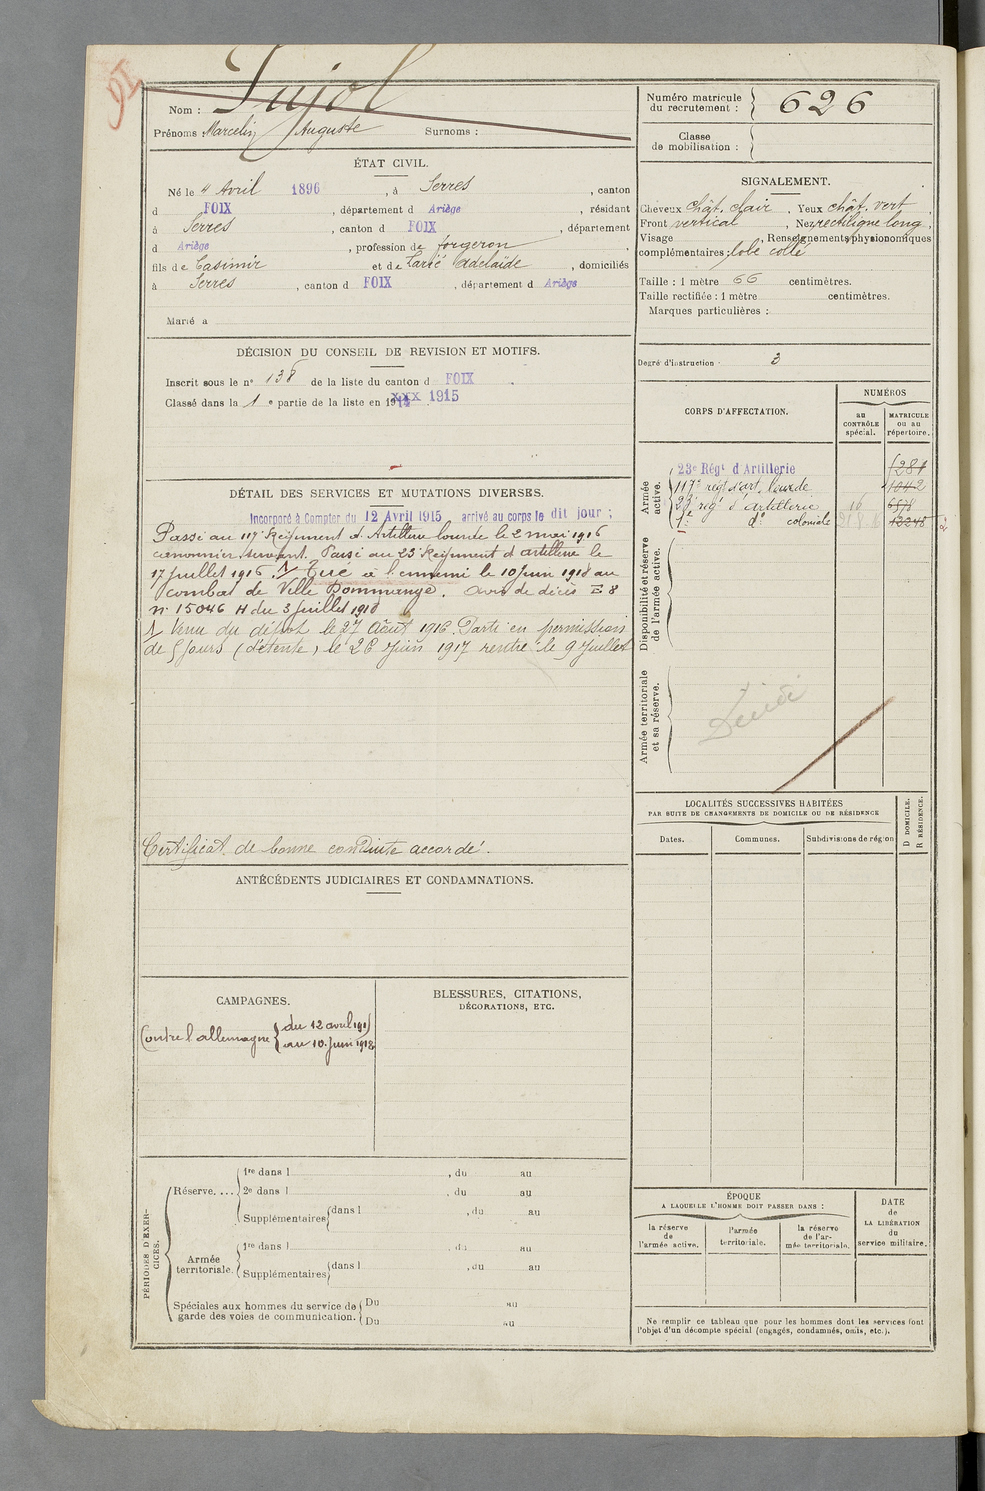 Nom : Pujol
Prénoms : Marcelin Auguste Surnoms :
Numéro matricule du recrutement : 626
Classe de mobilisation :
ÉTAT CIVIL.
Né le 4 Avril 1896, à Serres, canton
d FOIX, département d Ariège, résidant
à Serres, canton d FOIX, département
d Ariège, profession de forgeron,
fils de Casimir et de Larré Adelaïde, domiciliés
à Serres, canton d FOIX, département d Ariège
Marié à
DÉCISION DU CONSEIL DE REVISION ET MOTIFS.
Inscrit sous le n° 138 de la liste du canton d FOIX
Classé dans la 1e partie de la liste en 1914 xxx 1915
DÉTAIL DES SERVICES ET MUTATIONS DIVERSES.
Incorporé à Compter du 12 Avril 1915 arrivé au corps le dit jour ;
Passé au 117e Régiment d'Artillerie lourde le 2 mai 1916
canonnier servant. Passé au 23e Régiment d'artillerie le
17 juillet 1916. 1/ Tué à l'ennemi le 10 Juin 1918 au
combat de Ville Dommange. Avis de décès E 8
n° 15046 H du 3 juillet 1918
1/ Venu du dépôt le 27 Août 1916. Parti en permission
de 9 jours (détente) le 26 Juin 1917 rentré le 9 Juillet
Certificat de bonne conduite accordé.
ANTÉCÉDENTS JUDICIAIRES ET CONDAMNATIONS.
CAMPAGNES.
Contre l'allemagne { du 12 avril 1915
au 10 Juin 1918
BLESSURES, CITATIONS,
DÉCORATIONS, ETC.
PÉRIODES D'EXERCICES.
Réserve.... 1re dans l , du au
2e dans l , du au
Supplémentaires dans l , du au
Armée territoriale. 1re dans l , du au
Supplémentaires dans l , du au
Spéciales aux hommes du service de garde des voies de communication. Du au
Du au
SIGNALEMENT.
Cheveux chât. clair, Yeux chât. vert,
Front vertical, Nez rectiligne long,
Visage , Renseignements physionomiques
complémentaires : lobe collé
Taille : 1 mètre 66 centimètres.
Taille rectifiée : 1 mètre centimètres.
Marques particulières :
Degré d'instruction 3
CORPS D'AFFECTATION.
NUMÉROS
au CONTRÔLE spécial.
MATRICULE ou au répertoire.
Armée active.
23e Régt d'Artillerie 1281
117e regt d'art. lourde 1042
23e rég d'artillerie 16 6578
1er do coloniale 12248
Disponibilité et réserve de l'armée active.
Armée territoriale et sa réserve.
Décédé
LOCALITÉS SUCCESSIVES HABITÉES
PAR SUITE DE CHANGEMENTS DE DOMICILE OU DE RÉSIDENCE
Dates. Communes. Subdivisions de région D DOMICILE. R RÉSIDENCE.
ÉPOQUE
A LAQUELLE L'HOMME DOIT PASSER DANS :
la réserve de l'armée active.
l'armée territoriale.
la réserve de l'armée territoriale.
DATE de LA LIBÉRATION du service militaire.
Ne remplir ce tableau que pour les hommes dont les services font
l'objet d'un décompte spécial (engagés, condamnés, omis, etc.).